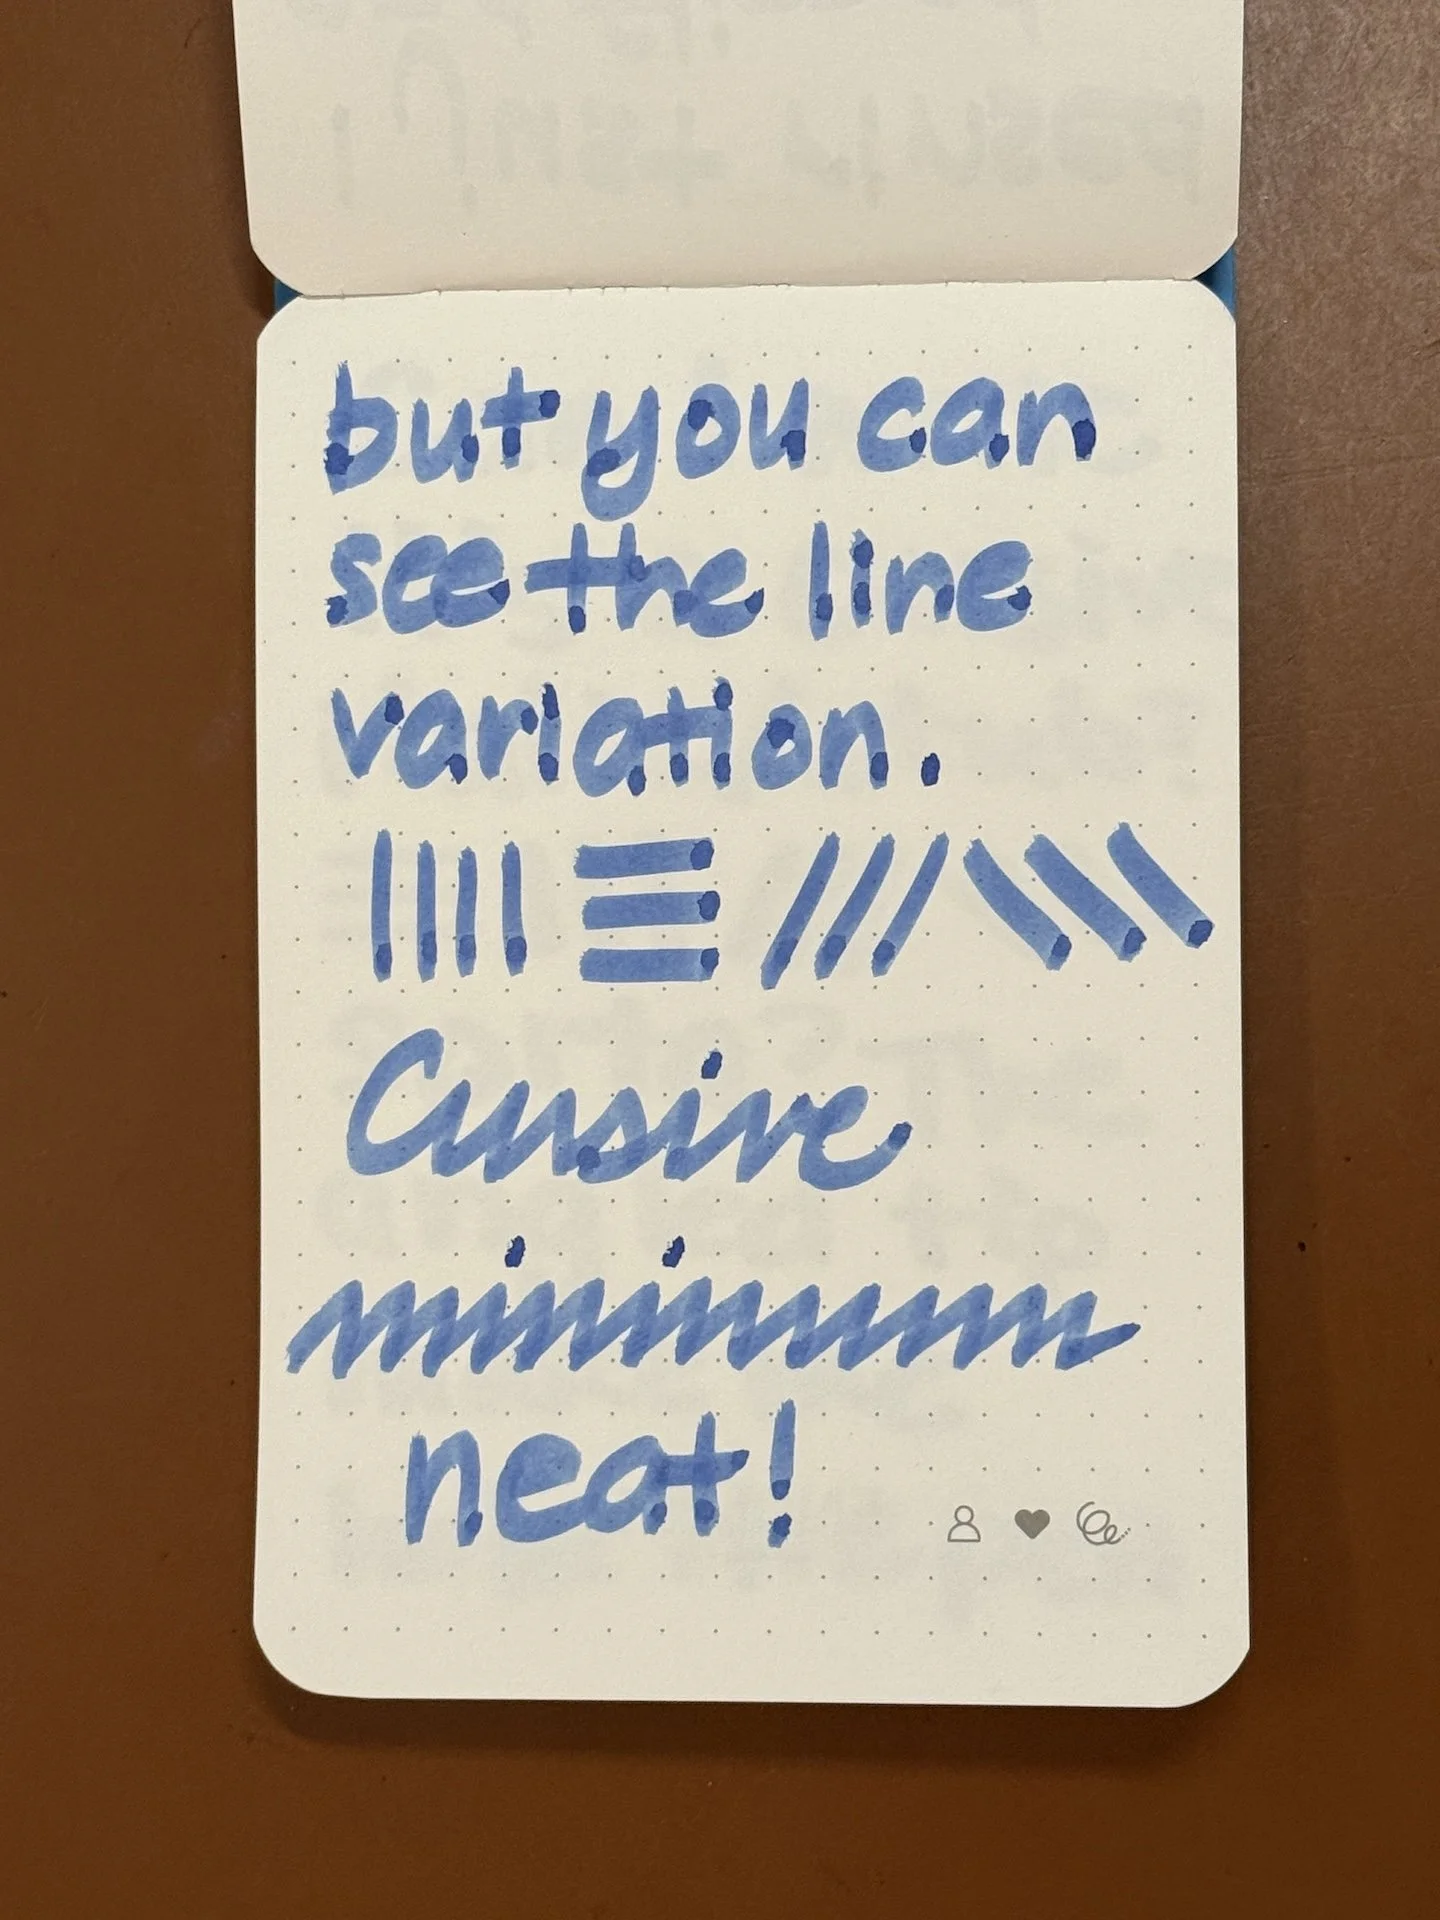 but you can
see the line
variation.
Cursive
minimum
neat!